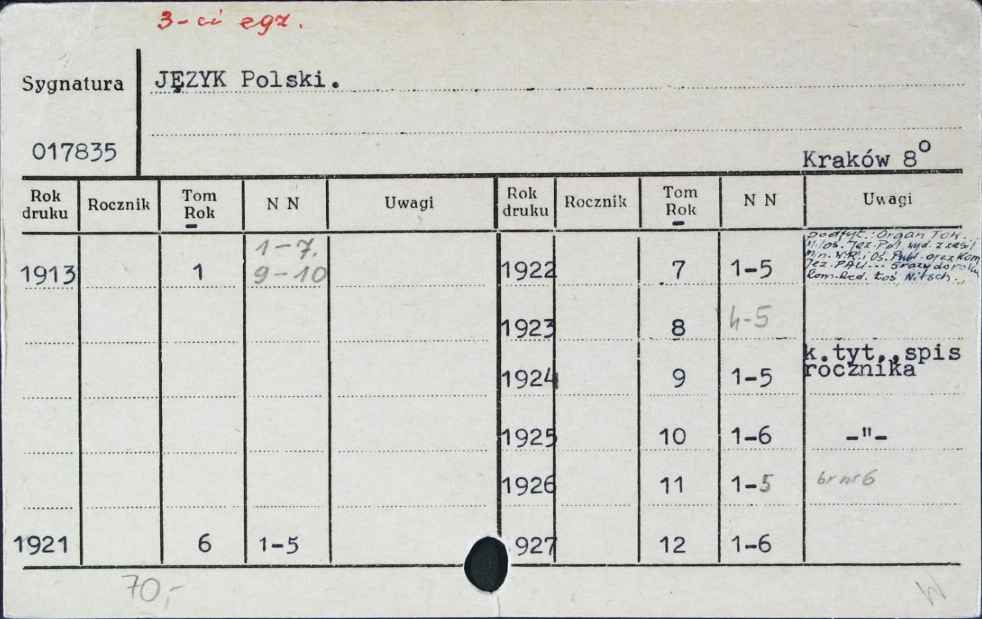 3-ci egz.
Sygnatura JĘZYK Polski.
017835
Kraków 8°
Rok druku Rocznik Tom Rok N N Uwagi Rok druku Rocznik Tom Rok N N Uwagi
podtyt.: Organ Tow.
Miłoś. Jęz. Pol. wyd. z zasił
Min. W.R. i Oś. Publ. oraz Kom
Jęz. PAU...
Kom. red. Łoś, Nitsch.
1-7.
1913 1 9-10 1922 7 1-5
1923 8 4-5
k.tyt., spis
rocznika
1924 9 1-5
1925 10 1-6 -"-
1926 11 1-5 br nr 6
1921 6 1-5 927 12 1-6
70,-
W